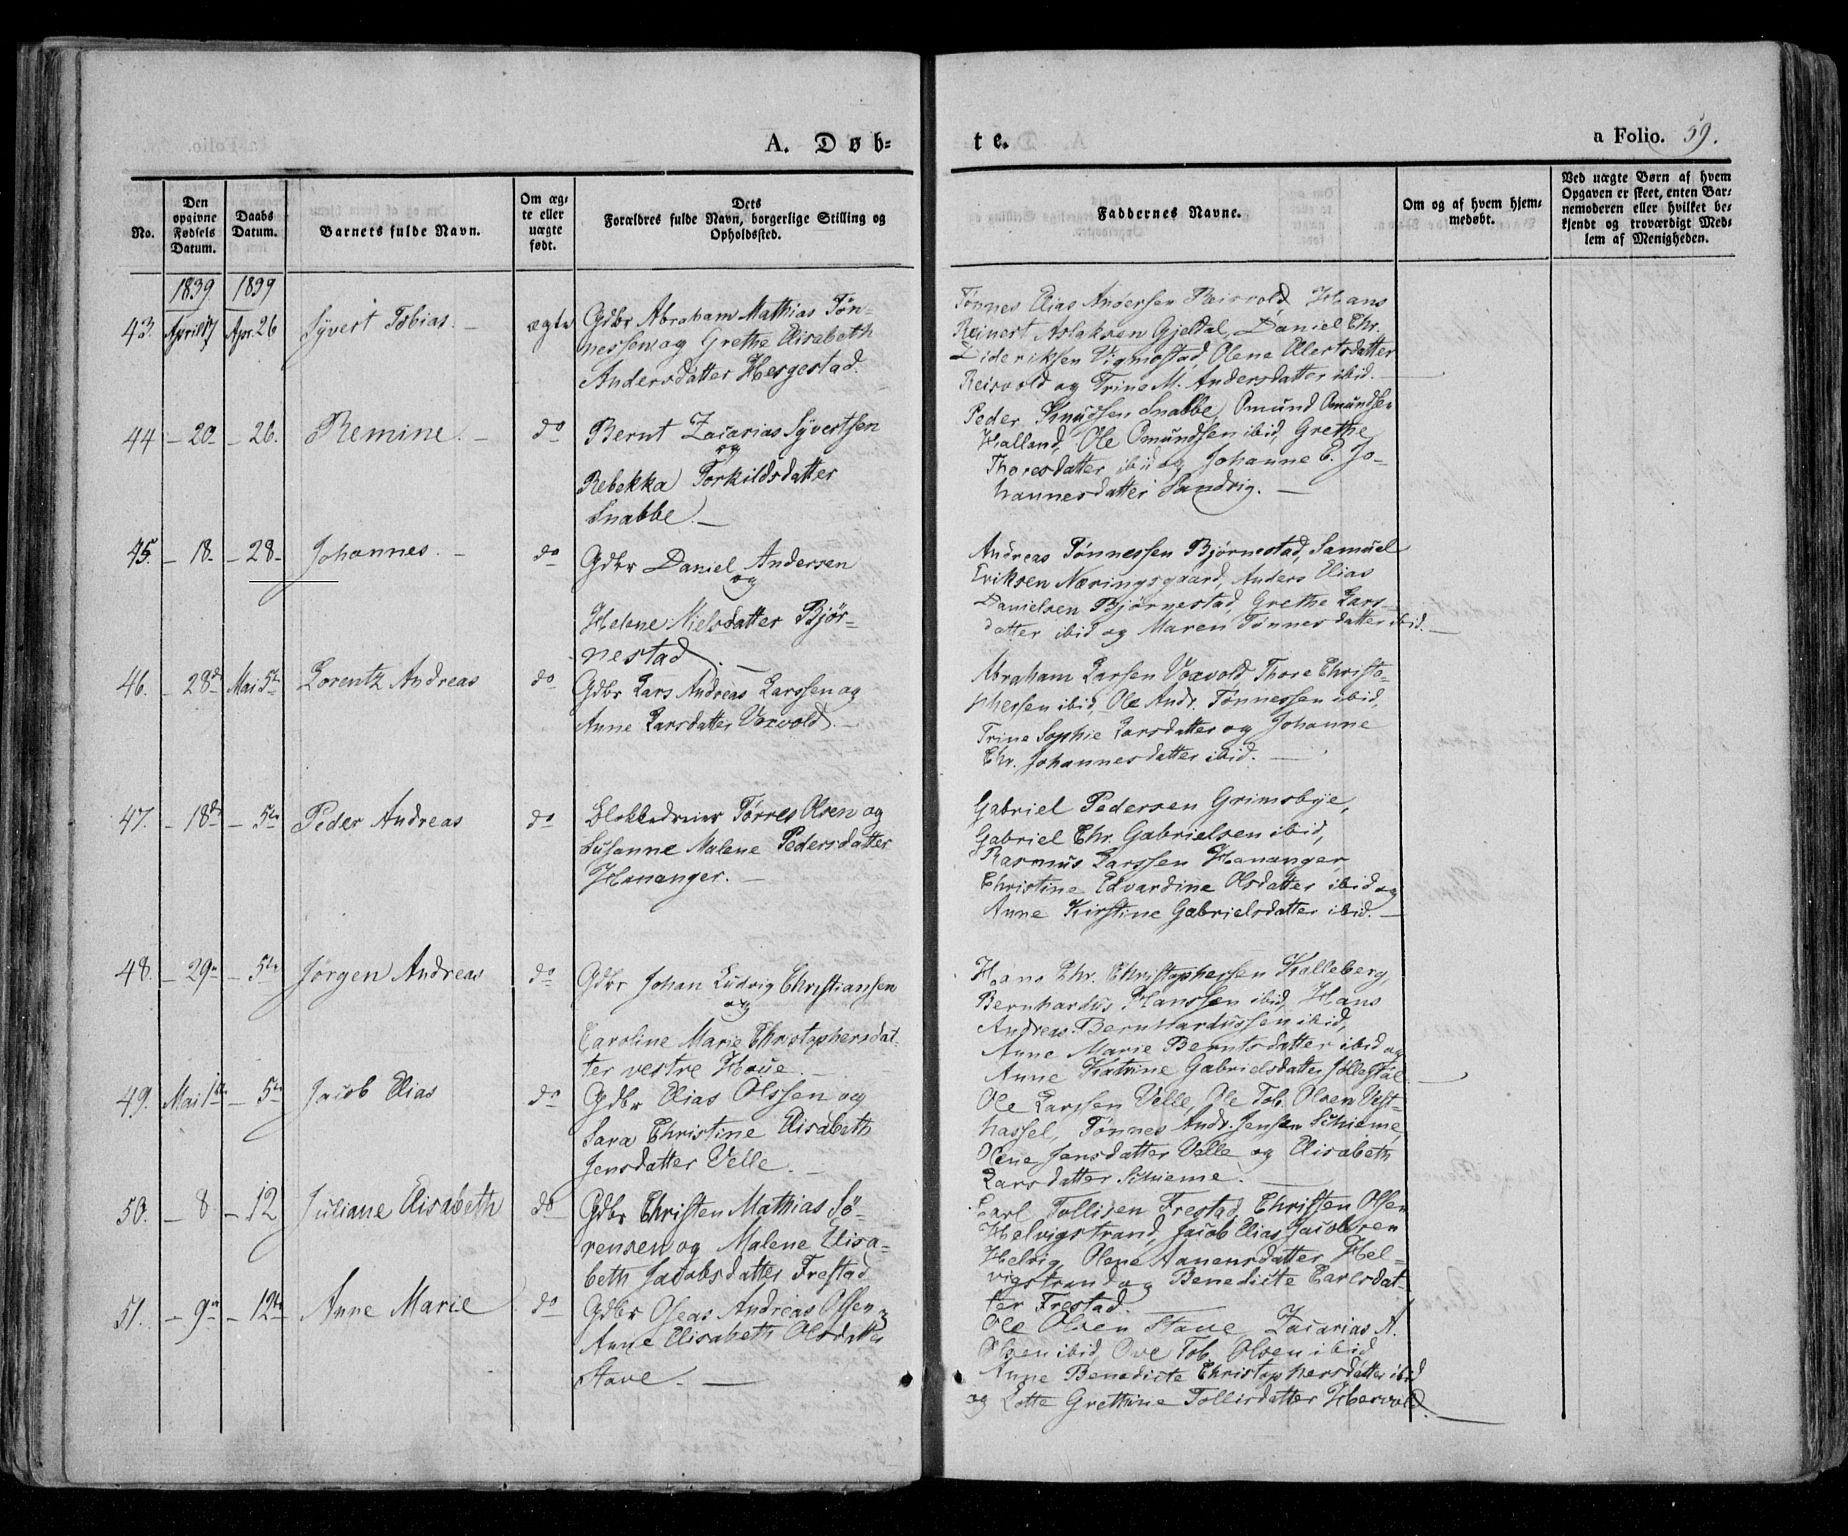 A. Døb=
te.
a Folio. 59.
No.
Den opgivne Fødsels Datum.
Daabs Datum.
Barnets fulde Navn.
Om ægte eller uægte født.
Dets Forældres fulde Navn, borgerlige Stilling og Opholdssted.
Faddernes Navne.
Om og af hvem hjemmedøbt.
Ved uægte Børn af hvem Opgaven er skeet, enten Barnemoderen eller hvilket bekjendt og troværdigt Medlem af Menigheden.
1839 1839
43. April 17 Apr. 26 Syvert Tobias. – ægte
Gdbr Abraham Mathias Tøn-
nessen og Grethe Elisabeth
Andersdatter Hergestad.
Tønnes Elias Andersen Reisvold, Hans
Reinert Aslaksen Gjeldal, Daniel Chr.
Dideriksen Vigmostad, Olene Ellertsdatter
Reisvold og Trine M. Andersdatter ibid. –
44 – 20 – 26. Remine. – do
Bernt Zacarias Syvertsen
og
Rebekka Torkildsdatter
Snabbe. –
Peder Knudsen Snabbe, Omund Omundsen
Halland, Ole Omundsen ibid, Grethe
Thoresdatter ibid og Johanne C. Jo-
hannesdatter Sandvig. –
45. – 18 – 28 – Johannes. – do
Gdbr Daniel Andersen
og
Helene Nielsdatter Bjør-
nestad. –
Andreas Tønnessen Bjørnestad, Samuel
Eriksen Næringsgaard, Anders Elias
Danielsen Bjørnestad, Grethe Lars-
datter ibid og Maren Tønnesdatter ibid. –
46. – 28de Mai 5te Lorentz Andreas do
Gdbr Lars Andreas Larssen og
Anne Larsdatter Voxvold. –
Abraham Larsen Voxvold, Thore Christo-
phersen ibid, Ole Andr. Tønnessen ibid,
Trine Sophie Larsdatter og Johanne
Chr. Johannesdatter ibid. –
47. – 18de – 5te Peder Andreas do
Blokkedreier Tørres Olsen og
Susanne Malene Pedersdatter
Hananger. –
Gabriel Pedersen Grimsbye,
Gabriel Chr. Gabrielsen ibid,
Rasmus Larssen Hananger,
Christine Edvardine Olsdatter ibid og
Anne Kirstine Gabrielsdatter ibid. –
48. – 29n – 5te Jørgen Andreas do
Gdbr Johan Ludvig Christiansen
og
Caroline Marie Christophersdat-
ter vestre Houe. –
Hans Chr. Christophersen Kalleberg,
Bernhardus Hanssen ibid, Hans
Andreas Bernhardussen ibid,
Anne Marie Berntsdatter ibid og
Anne Katrine Gabrielsdatter Jøllestøl –
49. Mai 1te – 5te Jacob Elias do
Gdbr Elias Olssen og
Sara Christine Elisabeth
Jensdatter Velle. –
Ole Larssen Velle, Ole Tob. Olsen Vest-
hassel, Tønnes Andr. Jensen Schieme,
Olene Jensdatter Velle og Elisabeth
Larsdatter Schieme. –
50. – 8 – 12 Juliane Elisabeth do
Gdbr Christen Mathias Sø-
rensen og Malene Elisa-
beth Jacobsdatter Frestad
Carl Tollisen Frestad, Christen Olsen
Helvigstrand, Jacob Elias Jacobsen
Helvig, Olene Aanensdatter Hel-
vigstrand og Benedicte Carlsdat-
ter Frestad.
51. – 9n – 12te Anne Marie do
Gdbr Oseas Andreas Olsen &
Anne Elisabeth Olsdatter
Stave. –
Ole Olsen Stave, Zacarias A.
Olsen ibid, Ove Tob. Olsen ibid
Anne Benedicte Christophersdatter ibid
og Lotte Grethine Tollisdatter Hervold. –